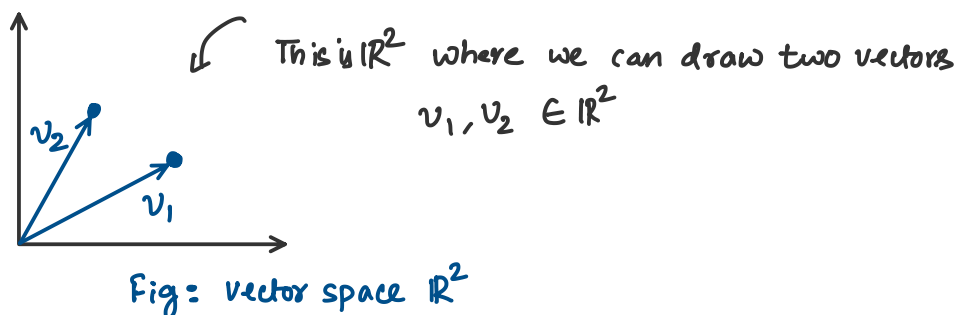 This is ℝ² where we can draw two vectors
v₁, v₂ ∈ ℝ²
v₂
v₁
Fig: vector space ℝ²